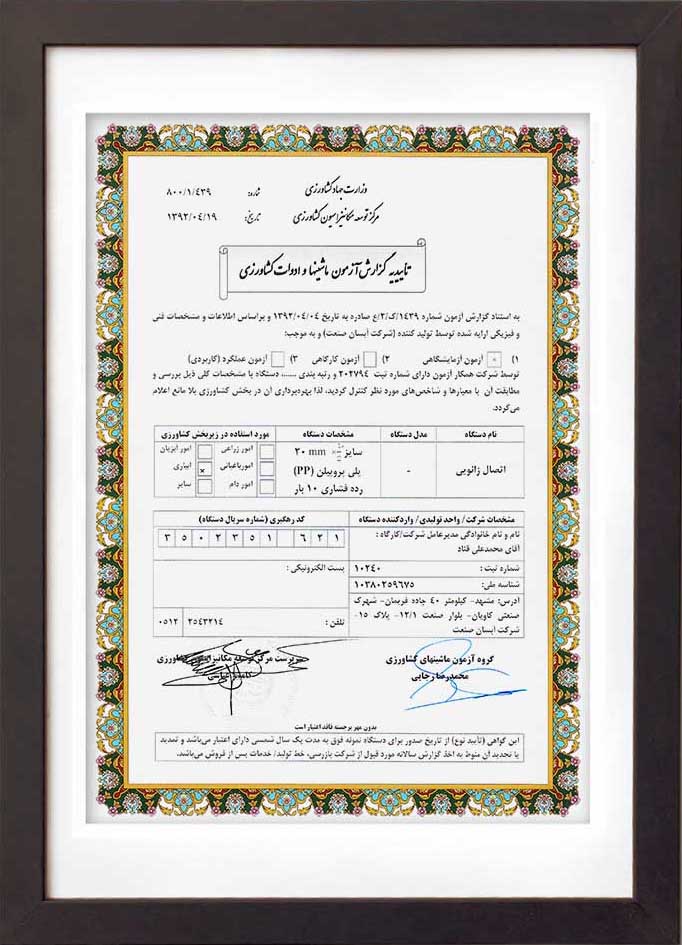 وزارت جهاد کشاورزی
شماره: ۸۰۰/۱/٤۳۹
مرکز توسعه مکانیزاسیون کشاورزی
تاریخ: ۱۳۹۲/۰٤/۱۹
تاییدیه گزارش آزمون ماشینها و ادوات کشاورزی
به استناد گزارش آزمون شماره ۱٤۳۹/ک/۲/ع صادره به تاریخ ۱۳۹۲/۰٤/۰٤ و براساس اطلاعات و مشخصات فنی
و فیزیکی ارایه شده توسط تولید کننده (شرکت آبسان صنعت) و به موجب:
۱) آزمون آزمایشگاهی ۲) آزمون کارگاهی ۳) آزمون عملکرد (کاربردی)
توسط شرکت همکار آزمون دارای شماره ثبت ۲۰۲۷۹٤ و رتبه بندی ...... دستگاه با مشخصات کلی ذیل بررسی و
مطابقت آن با معیارها و شاخص‌های مورد نظر کنترل گردید، لذا بهره‌برداری آن در بخش کشاورزی بلا مانع اعلام
می‌گردد.
نام دستگاه مدل دستگاه مشخصات دستگاه مورد استفاده در زیربخش کشاورزی
اتصال زانویی -
سایز ۲۰ mm
پلی پروپیلن (PP)
رده فشاری ۱۰ بار
امور زراعی امور آبزیان
امورباغبانی آبیاری ×
امور دام سایر
مشخصات شرکت/ واحد تولیدی/ واردکننده دستگاه کد رهگیری (شماره سریال دستگاه)
نام و نام خانوادگی مدیرعامل شرکت/کارگاه :
آقای محمدعلی قناد
۳ ۵ ۰ ۲ ۳ ۵ ۱ ٦ ۲ ۱
شماره ثبت : ۱۰۲٤۰
پست الکترونیکی :
شناسه ملی: ۱۰۳۸۰۲۵۹٦۷۵
آدرس: مشهد- کیلومتر ٤۰ جاده فریمان- شهرک
صنعتی کاویان- بلوار صنعت ۱۲/۱- پلاک ۱۵-
شرکت آبسان صنعت
تلفن : ۲۵٤۳۲۱٤ ۰۵۱۲
گروه آزمون ماشینهای کشاورزی
محمدرضا رجایی
سرپست مرکز توسعه مکانیزاسیون کشاورزی
بدون مهر برجسته فاقد اعتبار است
این گواهی (تأیید نوع) از تاریخ صدور برای دستگاه نمونه فوق به مدت یک سال شمسی دارای اعتبار می‌باشد و تمدید
یا تجدید آن منوط به اخذ گزارش سالانه مورد قبول از شرکت بازرسی، خط تولید/ خدمات پس از فروش می‌باشد.